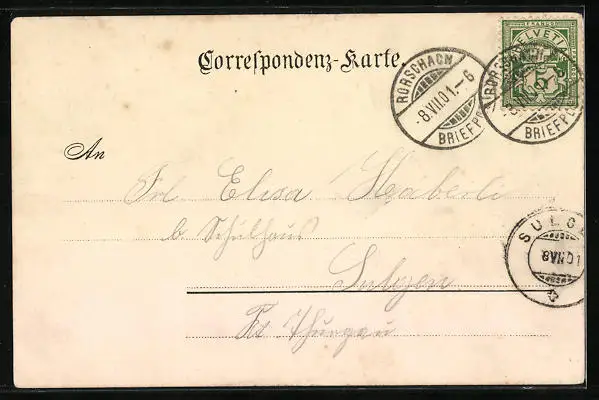 FRANCO
HELVETIA
5
Correspondenz-Karte.
RORSCHACH
-8.VII.01.-6
BRIEFP
RORSCHACH
BRIEFP
An
Frl Elisa Häberli
b Schulhaus
SULG
8 VII 01
Sulgen
Kt. Thurgau